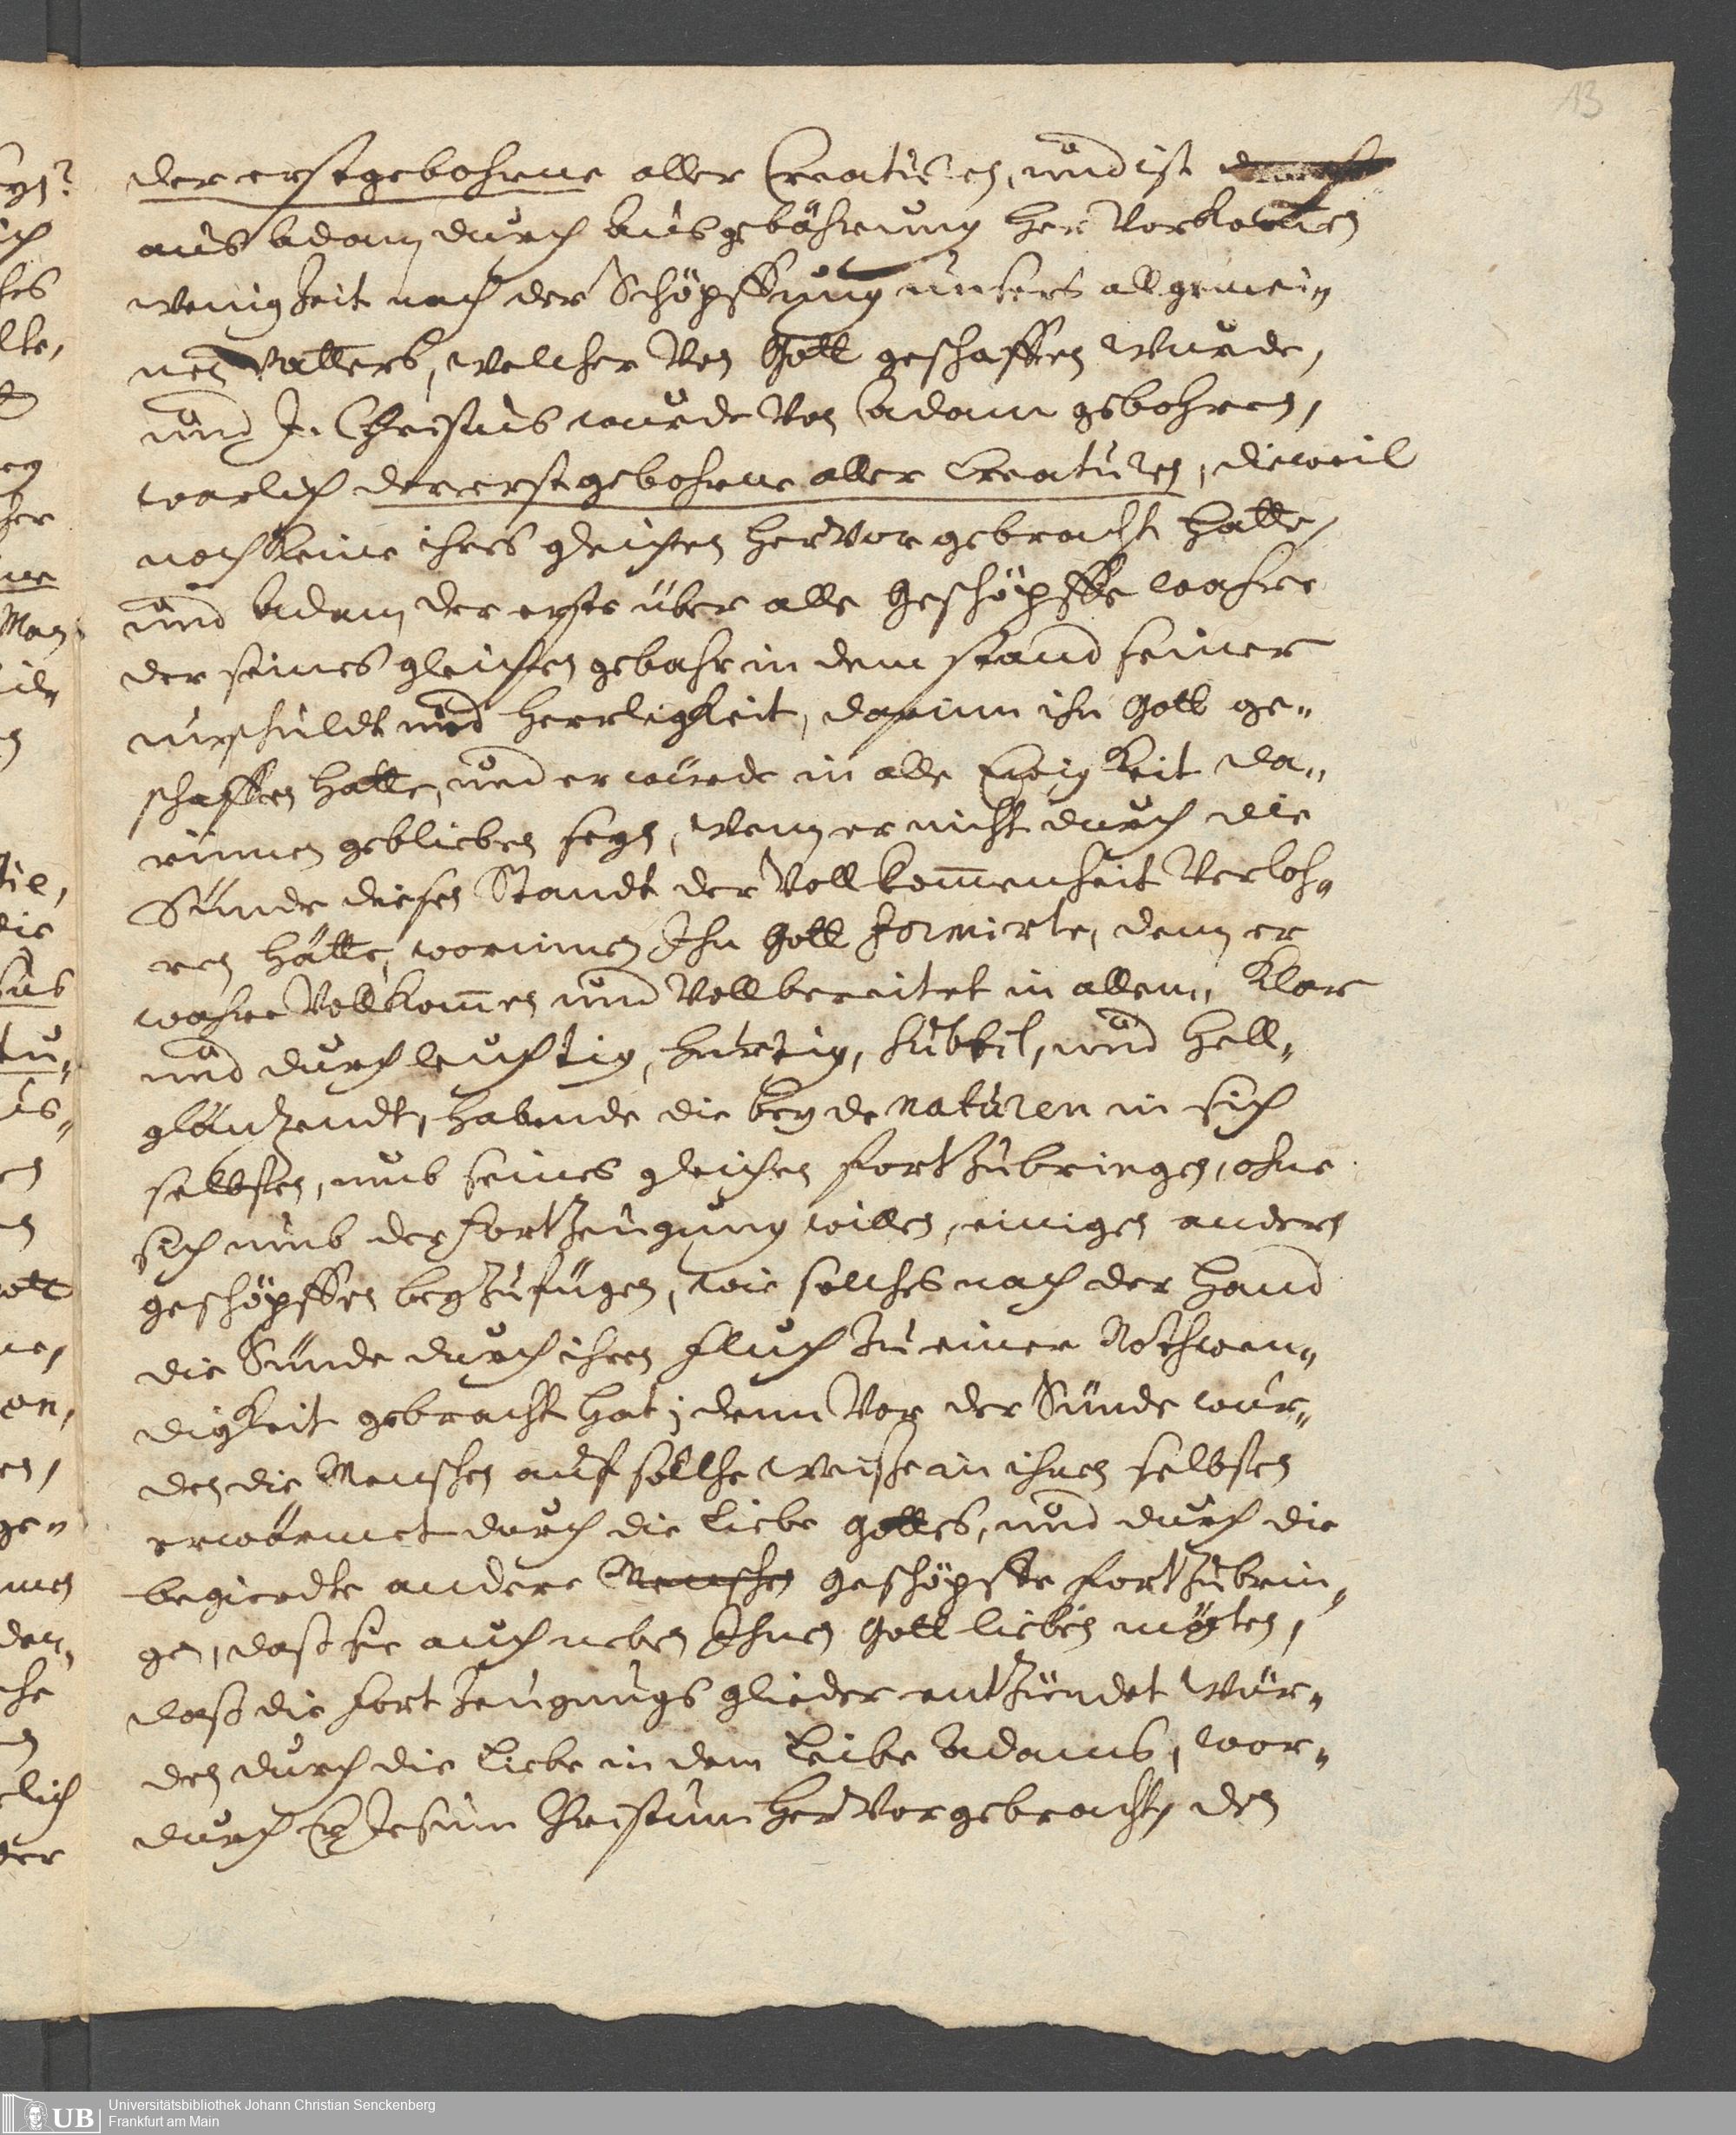 13
der erstgebohrne aller Creaturen, und ist
aus Adam durch Ausgebährung her Vorkomen
wenig Zeit nach der Schöpffung unsers allgemei⸗
nen Vatters, welcher Von Gott geschaffen wurde,
und J. Christus wurde Von Adam gebohren,
warlich der erstgebohrne aller Creaturen, dieweil
noch keine ihres gleichen hervor gebracht hatte,
und Adam der erste über alle Geschöpffe wahre
der seines gleichen gebahr in dem stand seiner
unschuldt und Herrligkeit, darinn ihn Gott ge⸗
schaffen hatte, und er würde in alle Ewigkeit da⸗
rinnen geblieben seyn, wenn er nicht durch die
Sünde diesen Standt der Vollkom̅enheit Verloh⸗
ren hätte, worinnen Ihn Gott formirte, denn er
wahre Vollkom̅en und Vollbereitet in allem, Klar
und durchleuchtig, hurtig, subtil, und hell⸗
gläntzendt, habende die beyde naturen in sich
selbsten, umb seines gleichen fortzubringen, ohne
sich umb der fortzeugung willen, einigen andern
geschöpffen beyzufügen, wie solches nach der Hand
die Sünde durch ihren Fluch zu einer Nothwen⸗
digkeit gebracht hat; denn Vor der Sünde wur⸗
den die Menschen auf solche weise in ihnen selbsten
erwärmet durch die Liebe Gottes, und durch die
begierdte andere Menschen geschöpffe fortzubrin⸗
gen, daß sie auch neben Ihnen Gott lieben mögten,
daß die fortzeugungs glieder entzündet wür⸗
den durch die Liebe in dem Leibe Adams, wor⸗
durch Er Jesum Christum hervorgebracht, den
Universitätsbibliothek Johann Christian Senckenberg
Frankfurt am Main
UB